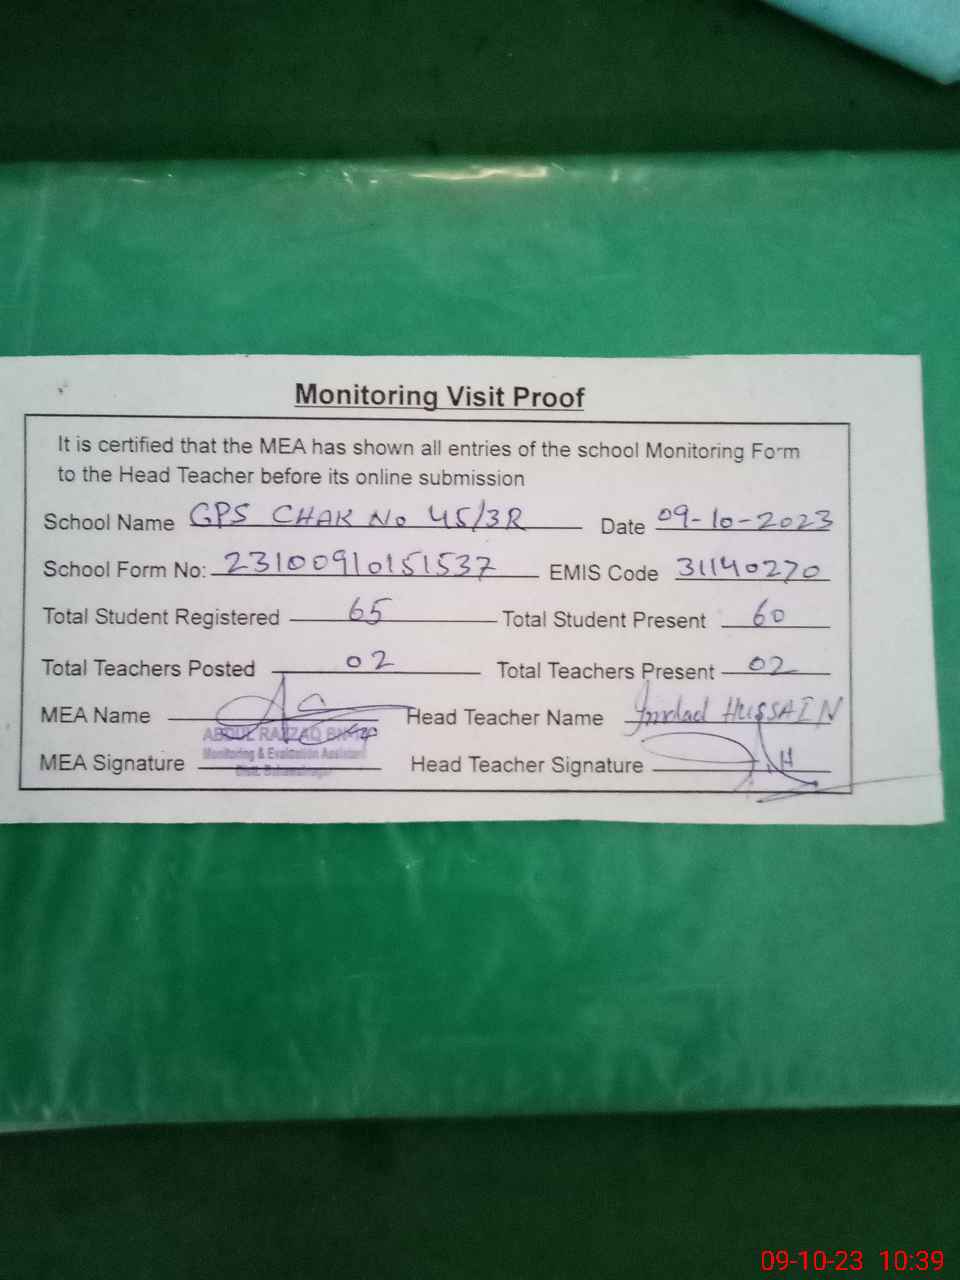 Monitoring Visit Proof
It is certified that the MEA has shown all entries of the school Monitoring Form
to the Head Teacher before its online submission
School Name GPS CHAK No 45/3R Date 09-10-2023
School Form No: 23100910151537 EMIS Code 31140270
Total Student Registered 65 Total Student Present 60
Total Teachers Posted 02 Total Teachers Present 02
MEA Name Head Teacher Name Imdad HUSSAIN
ABDUL RAZZAQ
Monitoring & Evaluation Assistant
MEA Signature Head Teacher Signature
Distt. Bahawalnagar
09-10-23 10:39